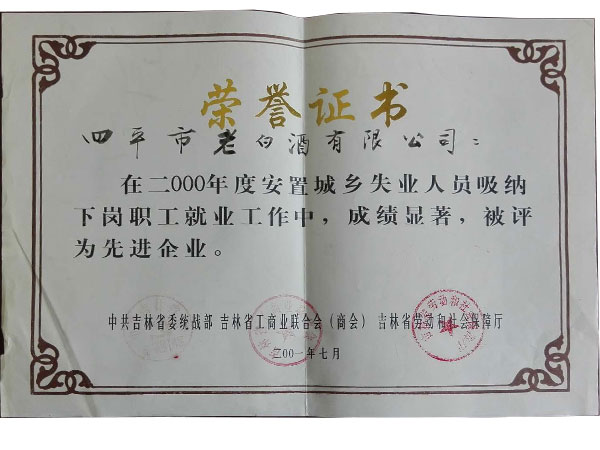 荣誉证书
四平市老白酒有限公司：
在二000年度安置城乡失业人员吸纳
下岗职工就业工作中，成绩显著，被评
为先进企业。
中共吉林省委统战部 吉林省工商业联合会（商会） 吉林省劳动和社会保障厅
二00一年七月